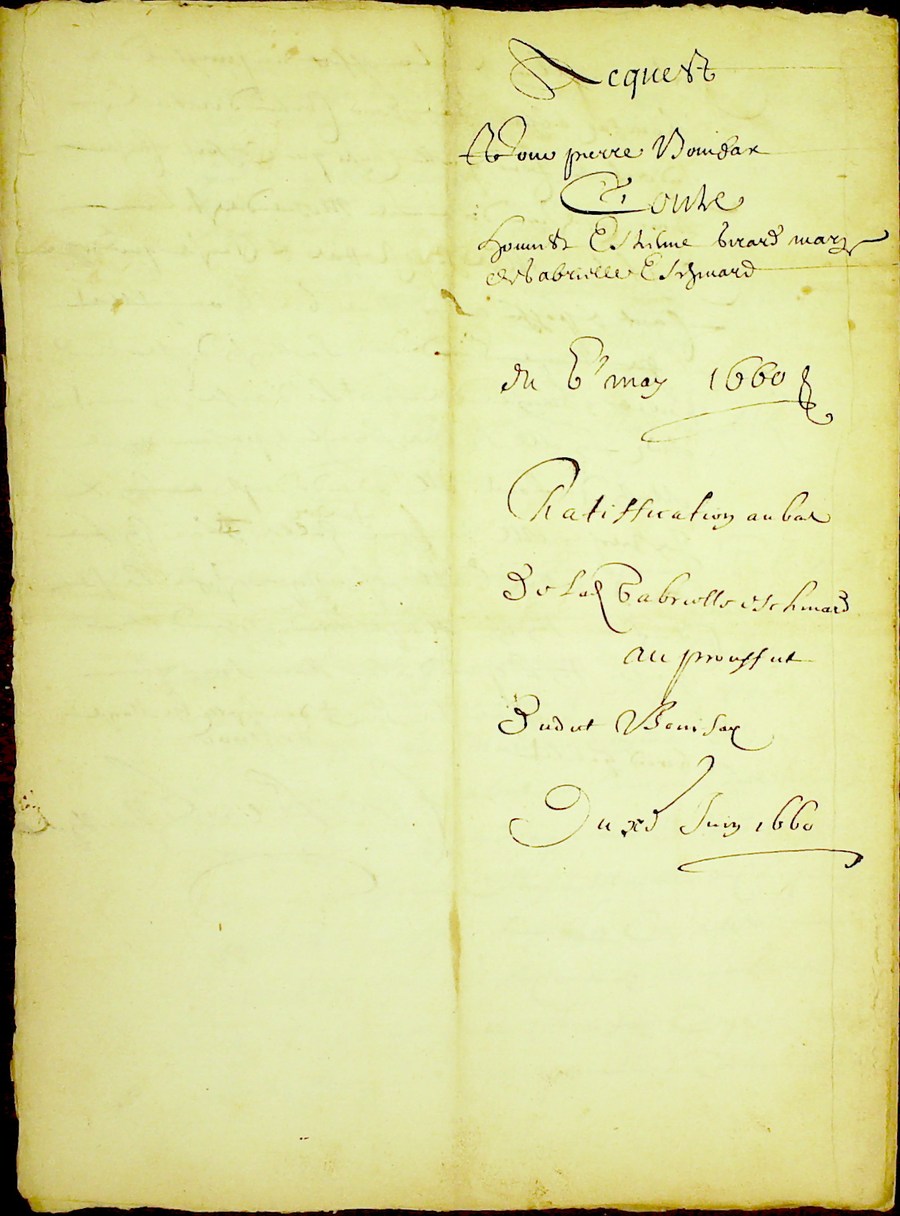 Acquest
Pour pierre Bonisax
Contre
honnest Estienne berard mary
de gabrielle Eschmard
du 6e may 1660
Rattiffication au bas
De lad gabrielle eschmard
au prouffit
Dudit Bonisax
Du xxd Juin 1660